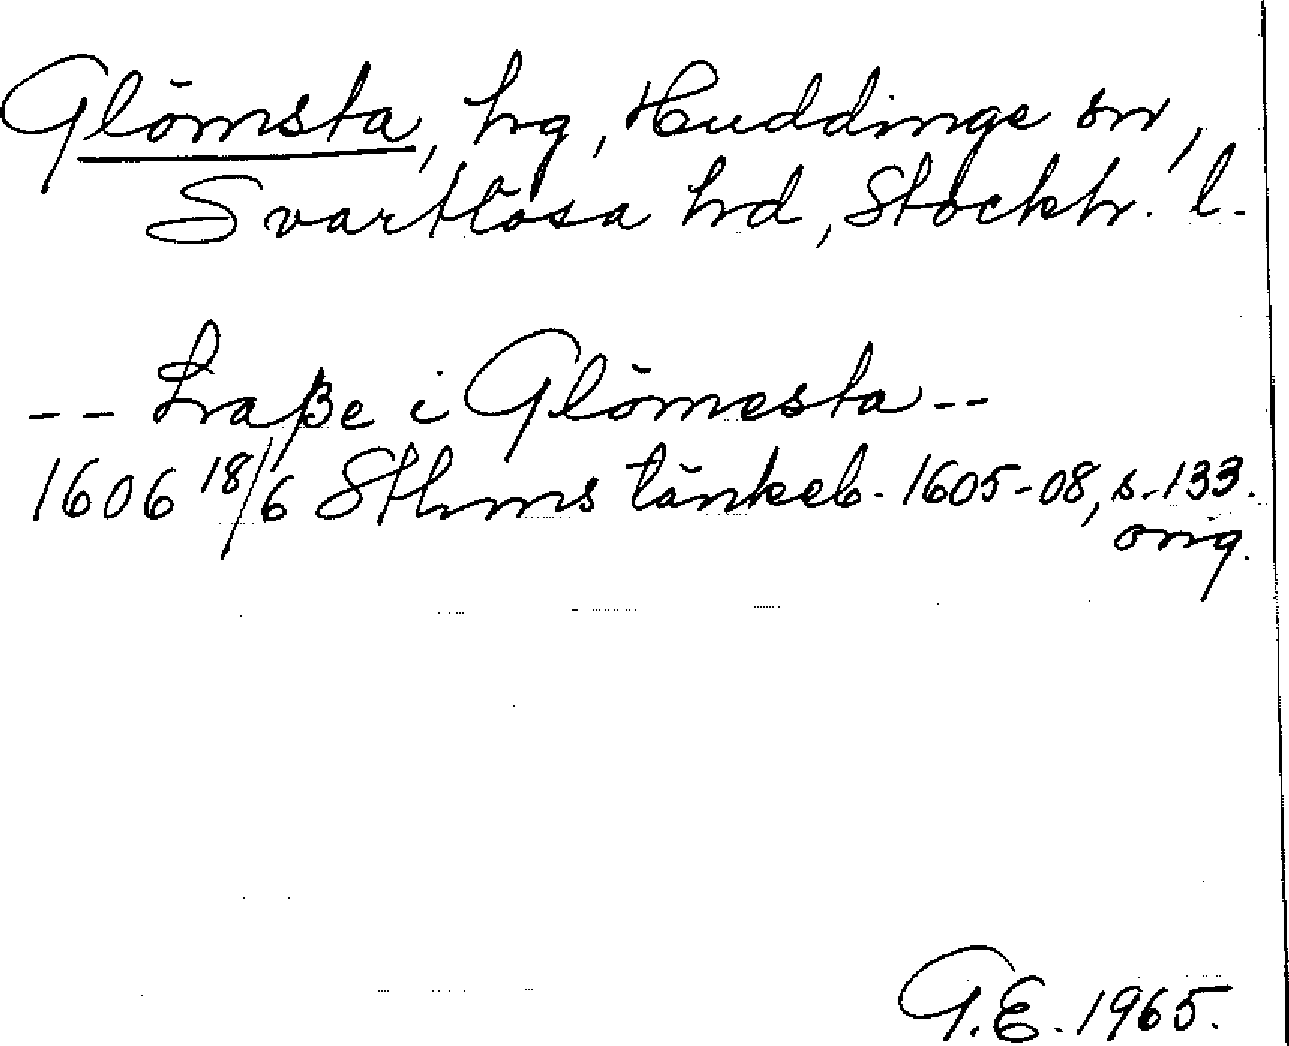 Glömsta, hg, Huddinge sn,
Svartlösa hd, Stockh. l.
-- Laße i Glömesta --
1606 18/6 Sthms tänkeb. 1605-08, s. 133.
orig.
G.E. 1965.